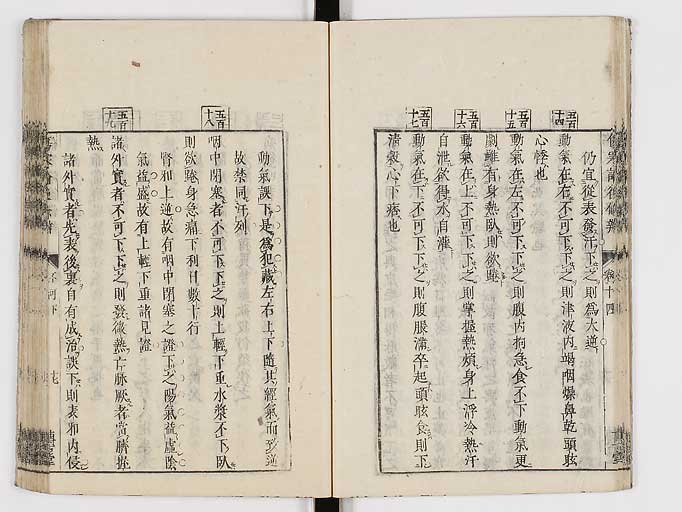 仍宜從表發汗下之則爲大逆
五百十四
動氣在右不可下下之則津液內竭咽燥鼻乾頭眩
心悸也
五百十五
動氣在左不可下下之則腹內拘急食不下動氣更
劇雖有身熱臥則欲踡
五百十六
動氣在上不可下下之則掌握熱煩身上浮冷熱汗
自泄欲得水自灌
五百十七
動氣在下不可下下之則腹脹滿卒起頭眩食則下
清穀心下痞也
卷十四
動氣誤下是爲犯藏左右上下隨其經氣而
故禁同汗列
五百十八
咽中閉塞者不可下下之則上輕下重水漿不下臥
則欲踡身急痛下利日數十行
腎和上逆故有咽中閉塞之證下之陽氣益虛陰
氣益盛故有上輕下重諸見證
五百十九
諸外實者不可下下之則發微熱亡脈厥者當臍握
熱
諸外實者先表後裏自有成治誤下則表邪內侵